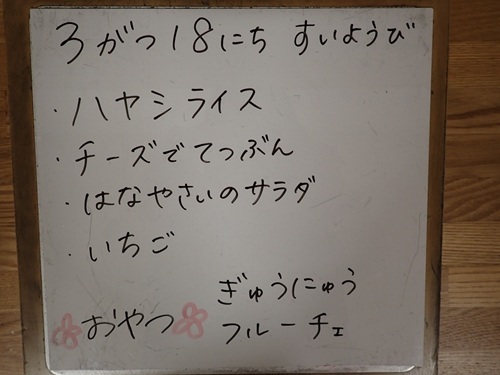 3がつ18にち すいようび
・ハヤシライス
・チーズでてつぶん
・はなやさいのサラダ
・いちご
おやつ ぎゅうにゅう
フルーチェ